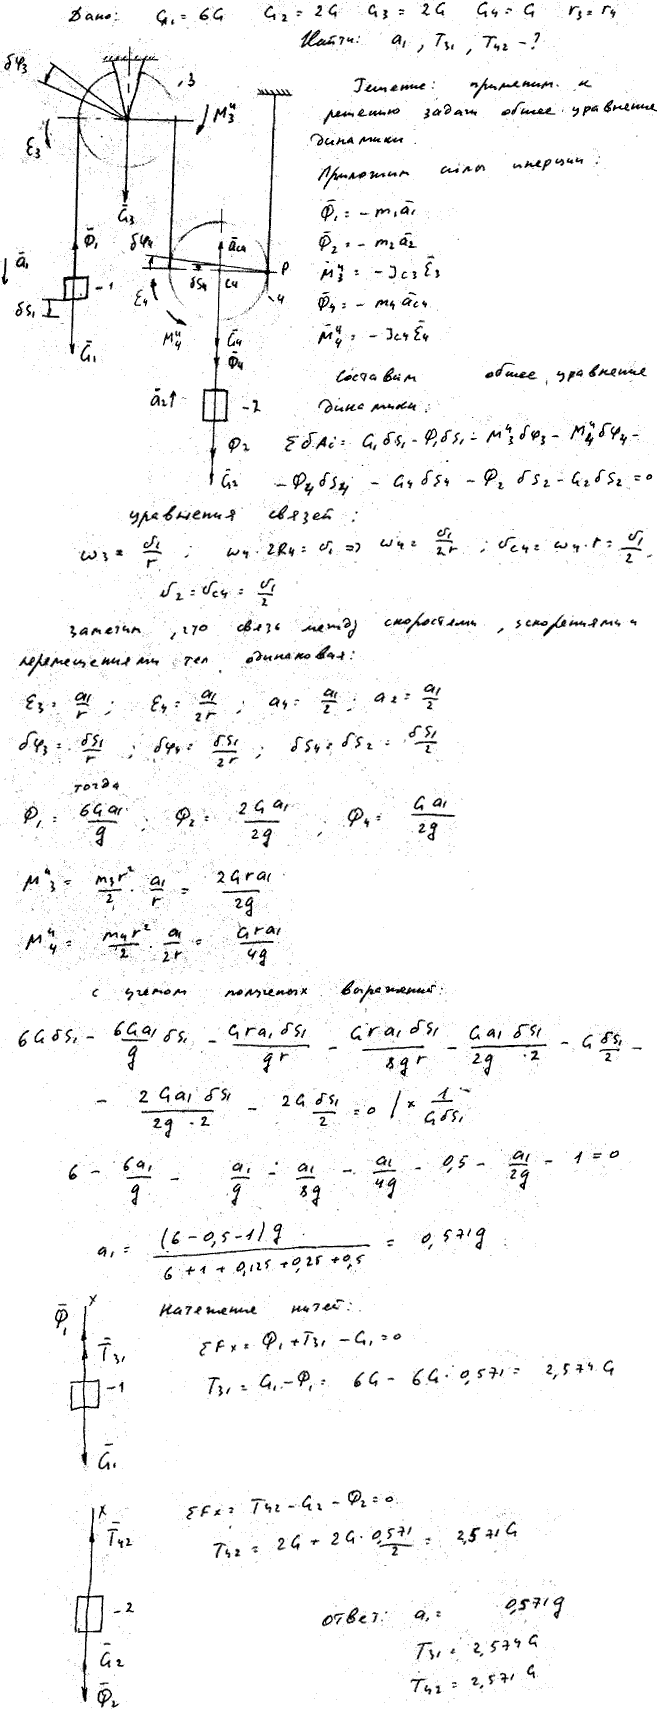 Дано: G₁ = 6G G₂ = 2G G₃ = 2G G₄ = G r₃ = r₄
Найти: a₁, T₃₁, T₄₂ - ?
δφ₃
3
M₃ᵘ
ε₃
Ḡ₃
Φ̄₁
ā₁
- 1
δS₁
Ḡ₁
δφ₄
ā_C4
P
δS₄
C₄
4
ε₄
M₄ᵘ
Ḡ₄
Φ̄₄
ā₂↑
- 2
Φ₂
Ḡ₂
Решение: применим к
решению задачи общее уравнение
динамики.
Приложим силы инерции:
Φ̄₁ = - m₁ā₁
Φ̄₂ = - m₂ā₂
M̄₃ᵘ = - J_C3 ε̄₃
Φ̄₄ = - m₄ā_C4
M̄₄ᵘ = - J_C4 ε̄₄
Составим общее уравнение
динамики:
ΣδAᵢ = G₁δS₁ - Φ₁δS₁ - M₃ᵘδφ₃ - M₄ᵘδφ₄ -
- Φ₄δS₄ - G₄δS₄ - Φ₂δS₂ - G₂δS₂ = 0
уравнения связей:
ω₃ = v₁/r ; ω₄·2R₄ = v₁ => ω₄ = v₁/2r ; v_C4 = ω₄·r = v₁/2,
v₂ = v_C4 = v₁/2
Заметим, что связь между скоростями, ускорениями и
перемещениями тел одинаковая:
ε₃ = a₁/r ; ε₄ = a₁/2r ; a₄ = a₁/2 ; a₂ = a₁/2
δφ₃ = δS₁/r ; δφ₄ = δS₁/2r ; δS₄ = δS₂ = δS₁/2
тогда
Φ₁ = 6Ga₁/g ; Φ₂ = 2Ga₁/2g ; Φ₄ = Ga₁/2g
M₃ᵘ = m₃r²/2 · a₁/r = 2Gra₁/2g
M₄ᵘ = m₄r²/2 · a₁/2r = Gra₁/4g
с учетом полученых выражений:
6GδS₁ - 6Ga₁/g δS₁ - Gra₁δS₁/gr - Gra₁δS₁/8gr - Ga₁δS₁/2g·2 - G δS₁/2 -
- 2Ga₁δS₁/2g·2 - 2G δS₁/2 = 0 /× 1/GδS₁
6 - 6a₁/g - a₁/g - a₁/8g - a₁/4g - 0,5 - a₁/2g - 1 = 0
a₁ = (6 - 0,5 - 1)g / 6 + 1 + 0,125 + 0,25 + 0,5 = 0,571g
Натяжение нитей:
Φ̄₁
x
T̄₃₁
- 1
Ḡ₁
ΣFx = Φ₁ + T₃₁ - G₁ = 0
T₃₁ = G₁ - Φ₁ = 6G - 6G·0,571 = 2,574G
x
T̄₄₂
- 2
Ḡ₂
Φ̄₂
ΣFx = T₄₂ - G₂ - Φ₂ = 0
T₄₂ = 2G + 2G·0,571/2 = 2,571G
ответ: a₁ = 0,571g
T₃₁ = 2,574G
T₄₂ = 2,571G